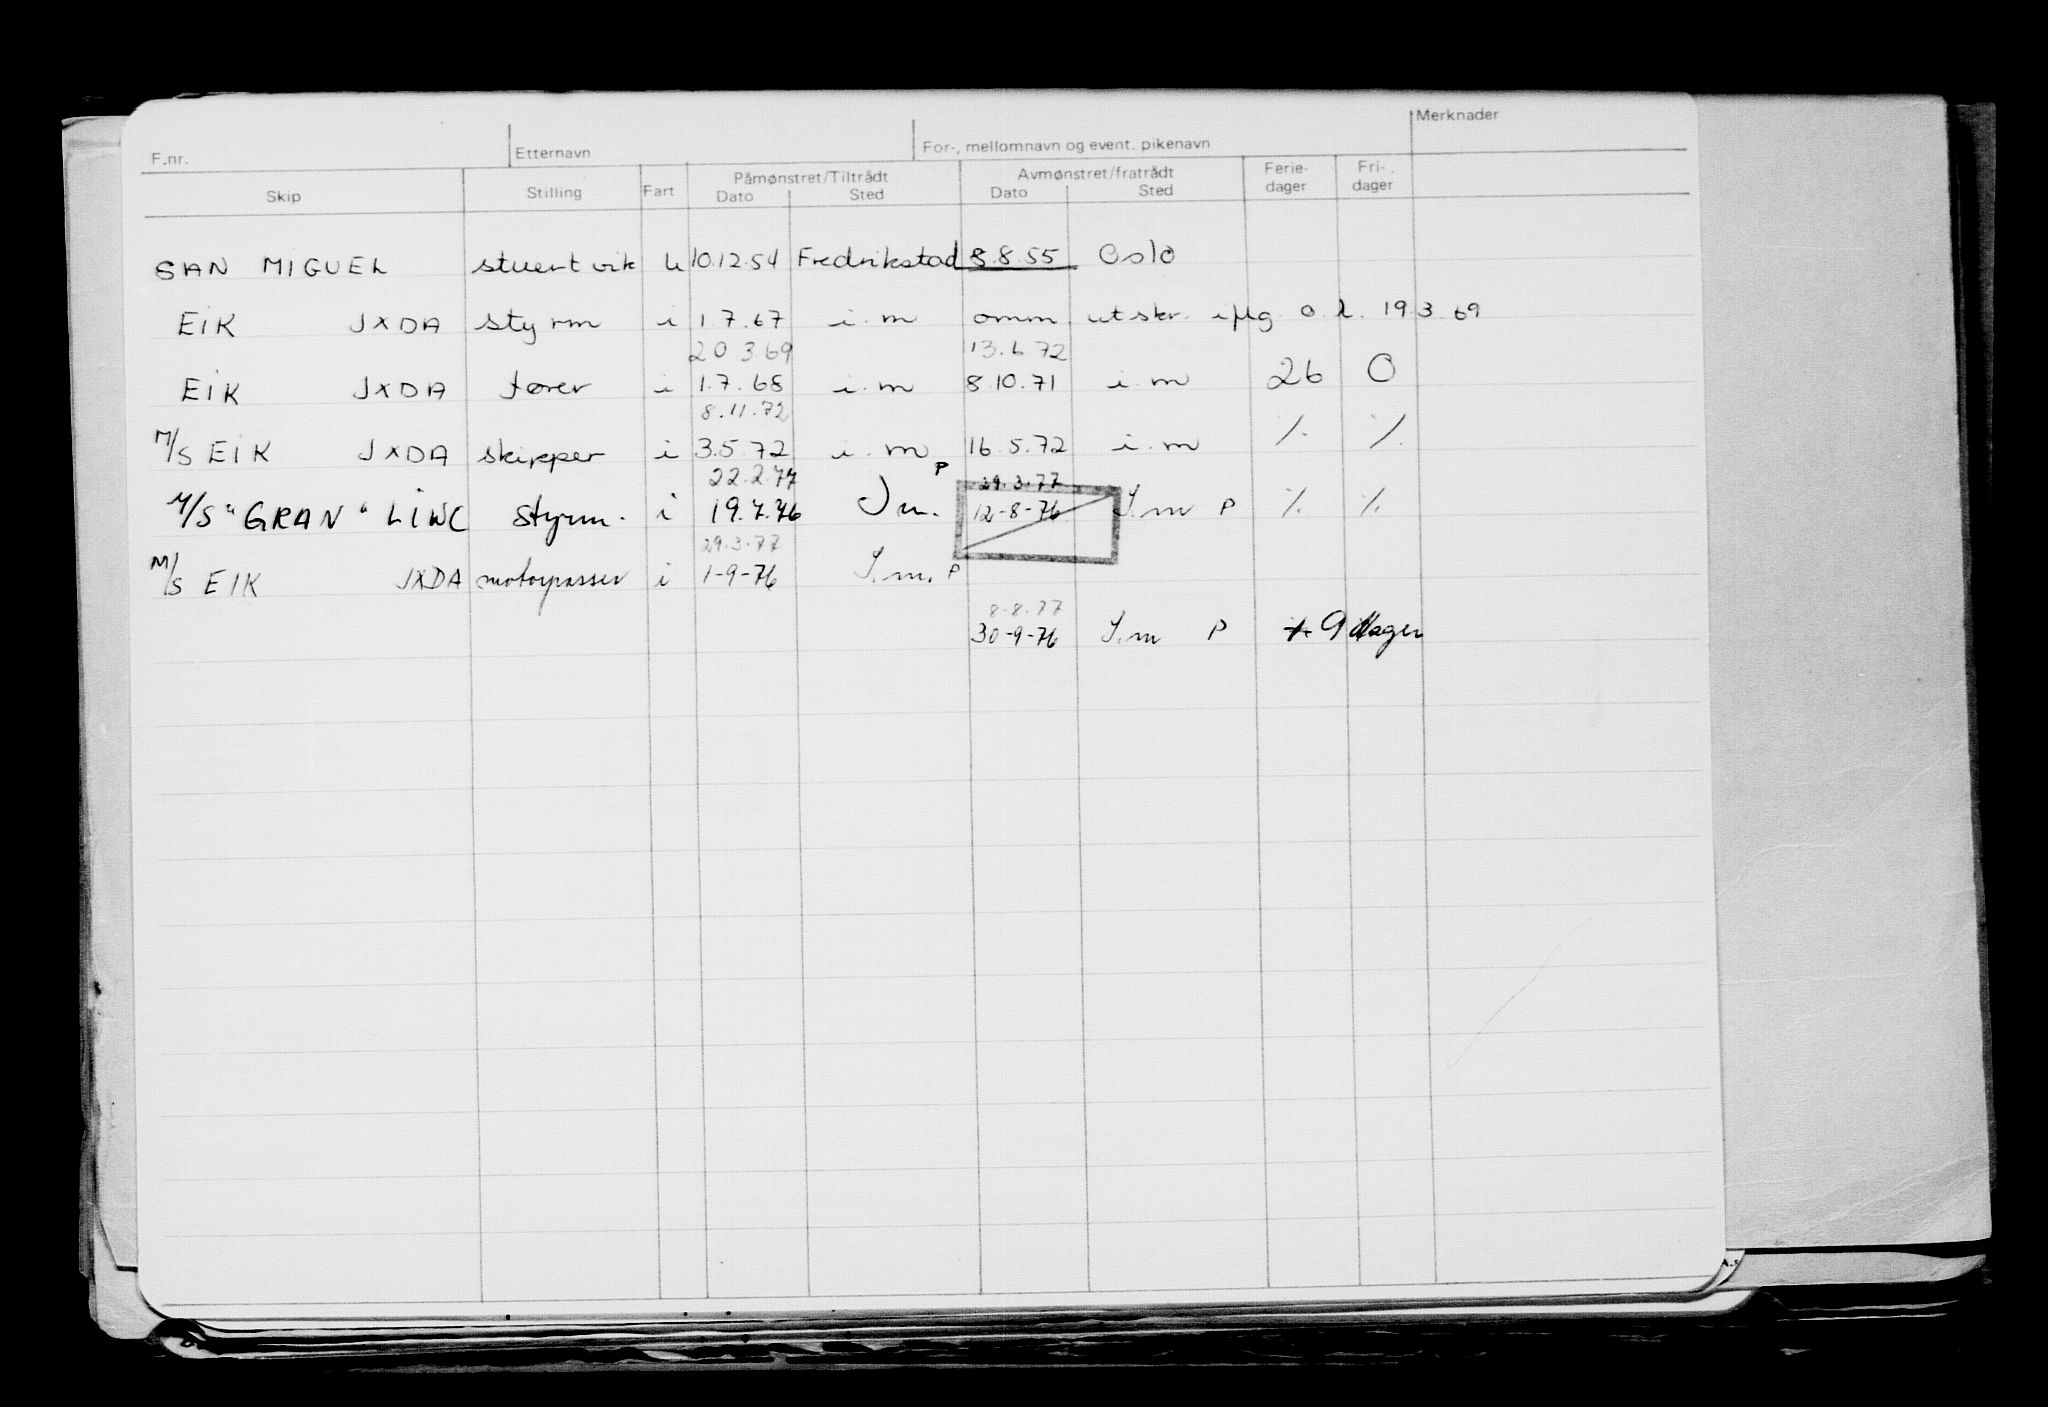 Merknader
F.nr. Etternavn For-, mellomnavn og event. pikenavn
Skip Stilling Fart Påmønstret/Tiltrådt Dato Sted Avmønstret/fratrådt Dato Sted Ferie-dager Fri-dager
SAN MIGUEL stuert vik u 10.12.54 Fredrikstad 8.8.55 Oslo
EIK JXDA styrm i 1.7.67 i.m omm. utskr. iflg. o.l. 19.3.69
20 3 69 13.6 72
EIK JXDA fører i 1.7.68 i.m 8.10.71 i.m 26 0
8.11.72
M/S EIK JXDA skipper i 3.5.72 i.m 16.5.72 i.m % %
22.2.77 P 29.3.77
M/S "GRAN" LIWC styrm. i 19.7.76 I m. 12-8-76 I.m P % %
29.3.77
M/S EIK JXDA motorpasser i 1-9-76 I.m. P
8.8.77
30-9-76 I.m P % 9 dager